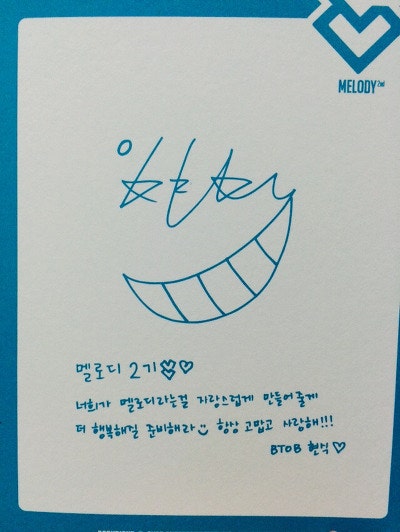 MELODY 2nd
멜로디 2기
너희가 멜로디라는걸 자랑스럽게 만들어줄게
더 행복해질 준비해라 항상 고맙고 사랑해!!!
BTOB 현식